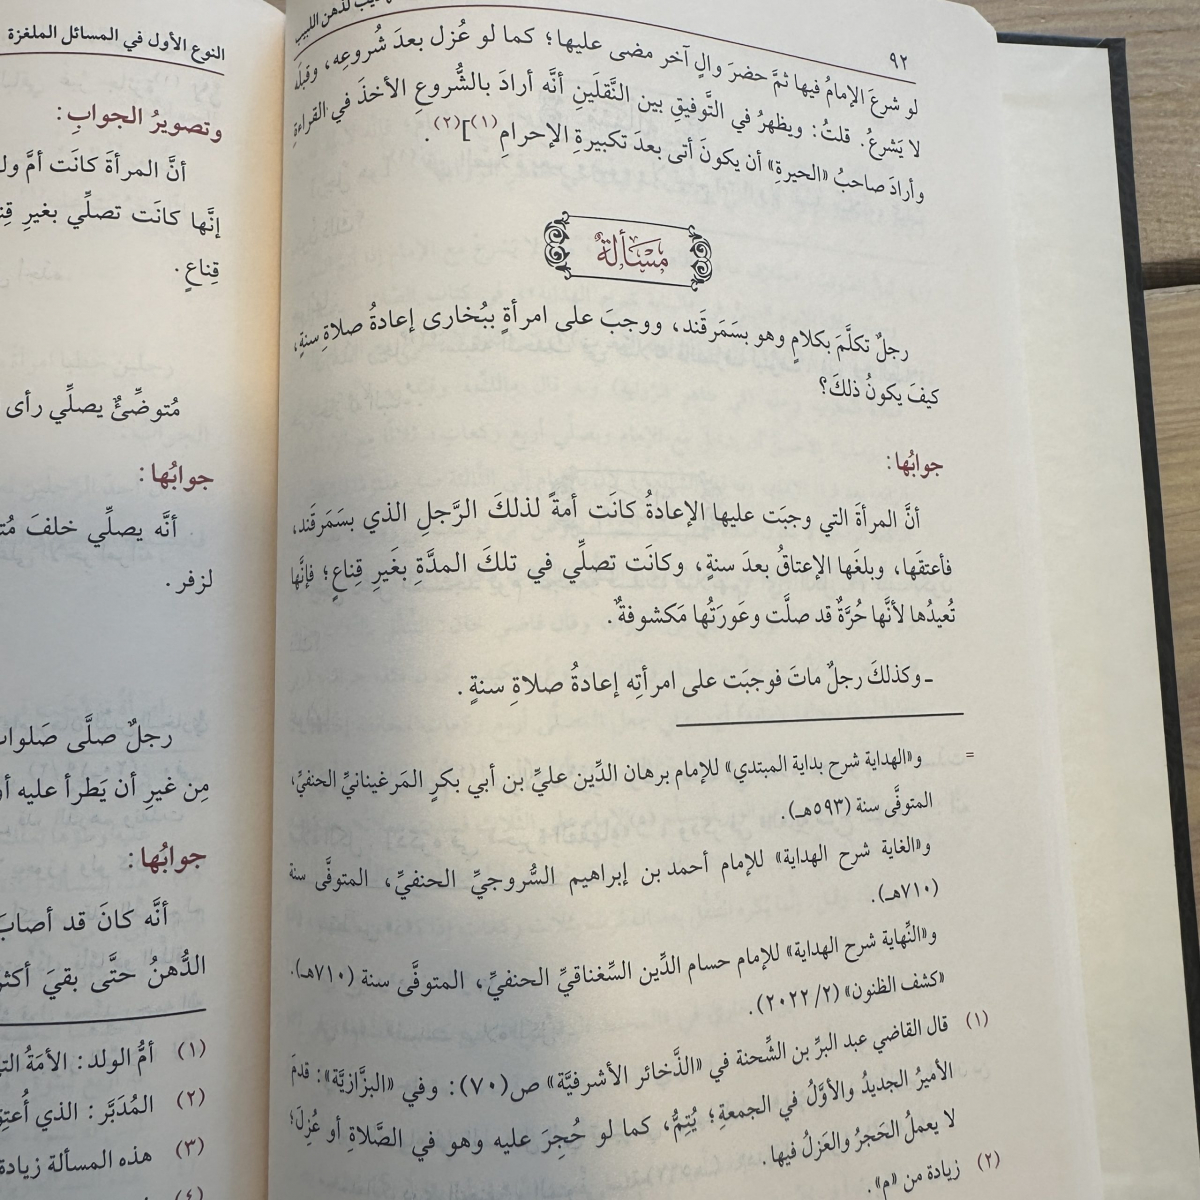 ٩٢
لو شرعَ الإمامُ فيها ثمَّ حضرَ والٍ آخر مضى عليها؛ كما لو عُزل بعدَ شُروعِه، وقبلُه
لا يَشرعُ. قلتُ: ويظهرُ في التَّوفيقِ بين النَّقلَينِ أنَّه أرادَ بالشُّروعِ الأخذَ في القراءةِ
وأرادَ صاحبُ «الحيرةِ» أن يكونَ أتى بعدَ تكبيرةِ الإحرامِ(١)](٢).
مَسْألةٌ
رجلٌ تكلَّمَ بكلامٍ وهو بسَمَرقَند، ووجبَ على امرأةٍ ببُخارى إعادةُ صلاةِ سنةٍ،
كيفَ يكونُ ذلكَ؟
جوابُها:
أنَّ المرأةَ التي وجبَت عليها الإعادةُ كانَت أمةً لذلكَ الرَّجلِ الذي بسَمَرقَند،
فأعتقَها، وبلغَها الإعتاقُ بعدَ سنةٍ، وكانَت تصلِّي في تلكَ المدَّةِ بغَيرِ قِناعٍ؛ فإنَّها
تُعيدُها لأنَّها حُرَّةٌ قد صلَّت وعَورَتُها مَكشوفةٌ.
ـ وكذلكَ رجلٌ ماتَ فوجبَت على امرأتِه إعادةُ صلاةِ سنةٍ.
= و«الهداية شرح بداية المبتدي» للإمام برهان الدِّين عليِّ بن أبي بكرٍ المَرغينانيِّ الحنفيِّ،
المتوفَّى سنة (٥٩٣هـ).
و«الغاية شرح الهداية» للإمام أحمد بن إبراهيم السُّروجيِّ الحنفيِّ، المتوفَّى سنة
(٧١٠هـ).
و«النِّهاية شرح الهداية» للإمام حسام الدِّين السِّغناقيِّ الحنفيِّ، المتوفَّى سنة (٧١٠هـ).
«كشف الظنون» (٢/ ٢٠٢٢).
(١) قال القاضي عبد البرِّ بن الشِّحنة في «الذَّخائر الأشرفيَّة» ص(٧٠): وفي «البزَّازيَّة»: قدمَ
الأميرُ الجديدُ والأوَّلُ في الجمعةِ؛ يُتِمُّ، كما لو حُجِرَ عليه وهو في الصَّلاةِ أو عُزِلَ؛
لا يعملُ الحَجرُ والعَزلُ فيها.
(٢) زيادة من «م».
النوع الأول في المسائل الملغزة
وتصويرُ الجوابِ:
أنَّ المرأةَ كانَت أمَّ
إنَّها كانَت تصلِّي بغيرِ
قِناعٍ.
مُتوضِّئٌ يصلِّي رأى
جوابُها:
أنَّه يصلِّي خلفَ
لزفر.
رجلٌ صلَّى
مِن غيرِ أن يَطرأ عليه
جوابُها:
أنَّه كانَ قد
الدُّهنُ حتَّى بقيَ
(١) أمُّ الولد: الأمَةُ
(٢) المُدَبَّر: الذي
(٣) هذه المسألة زيادة
(٤)